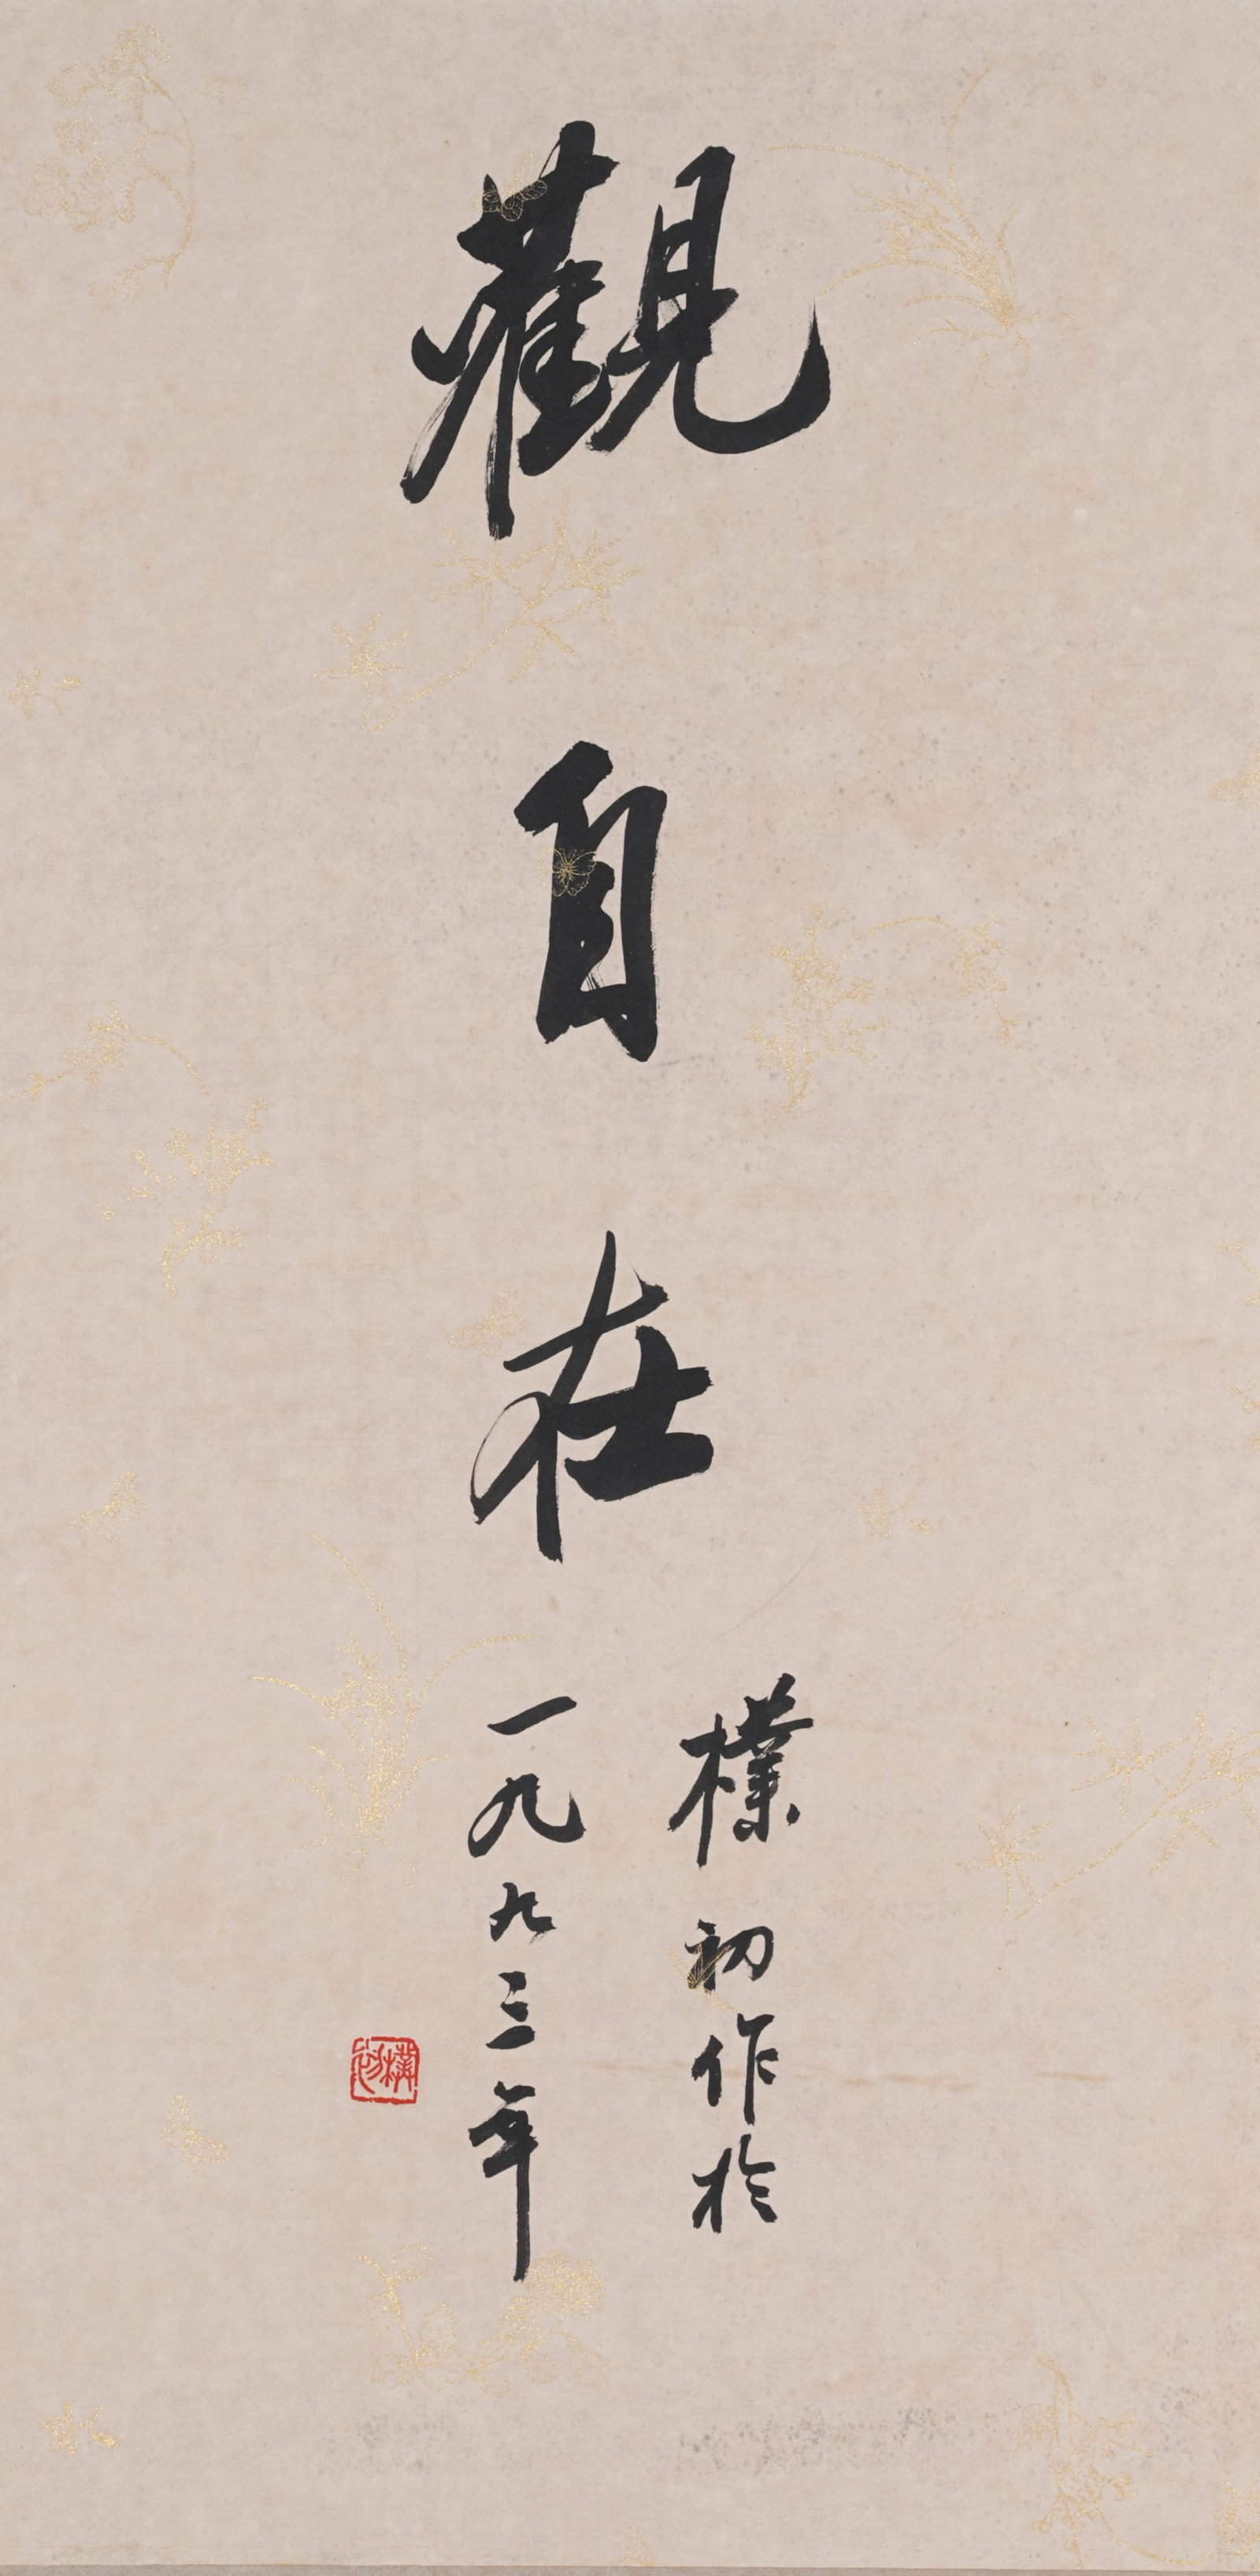 觀自在
樸初作於
一九九三年
樸初